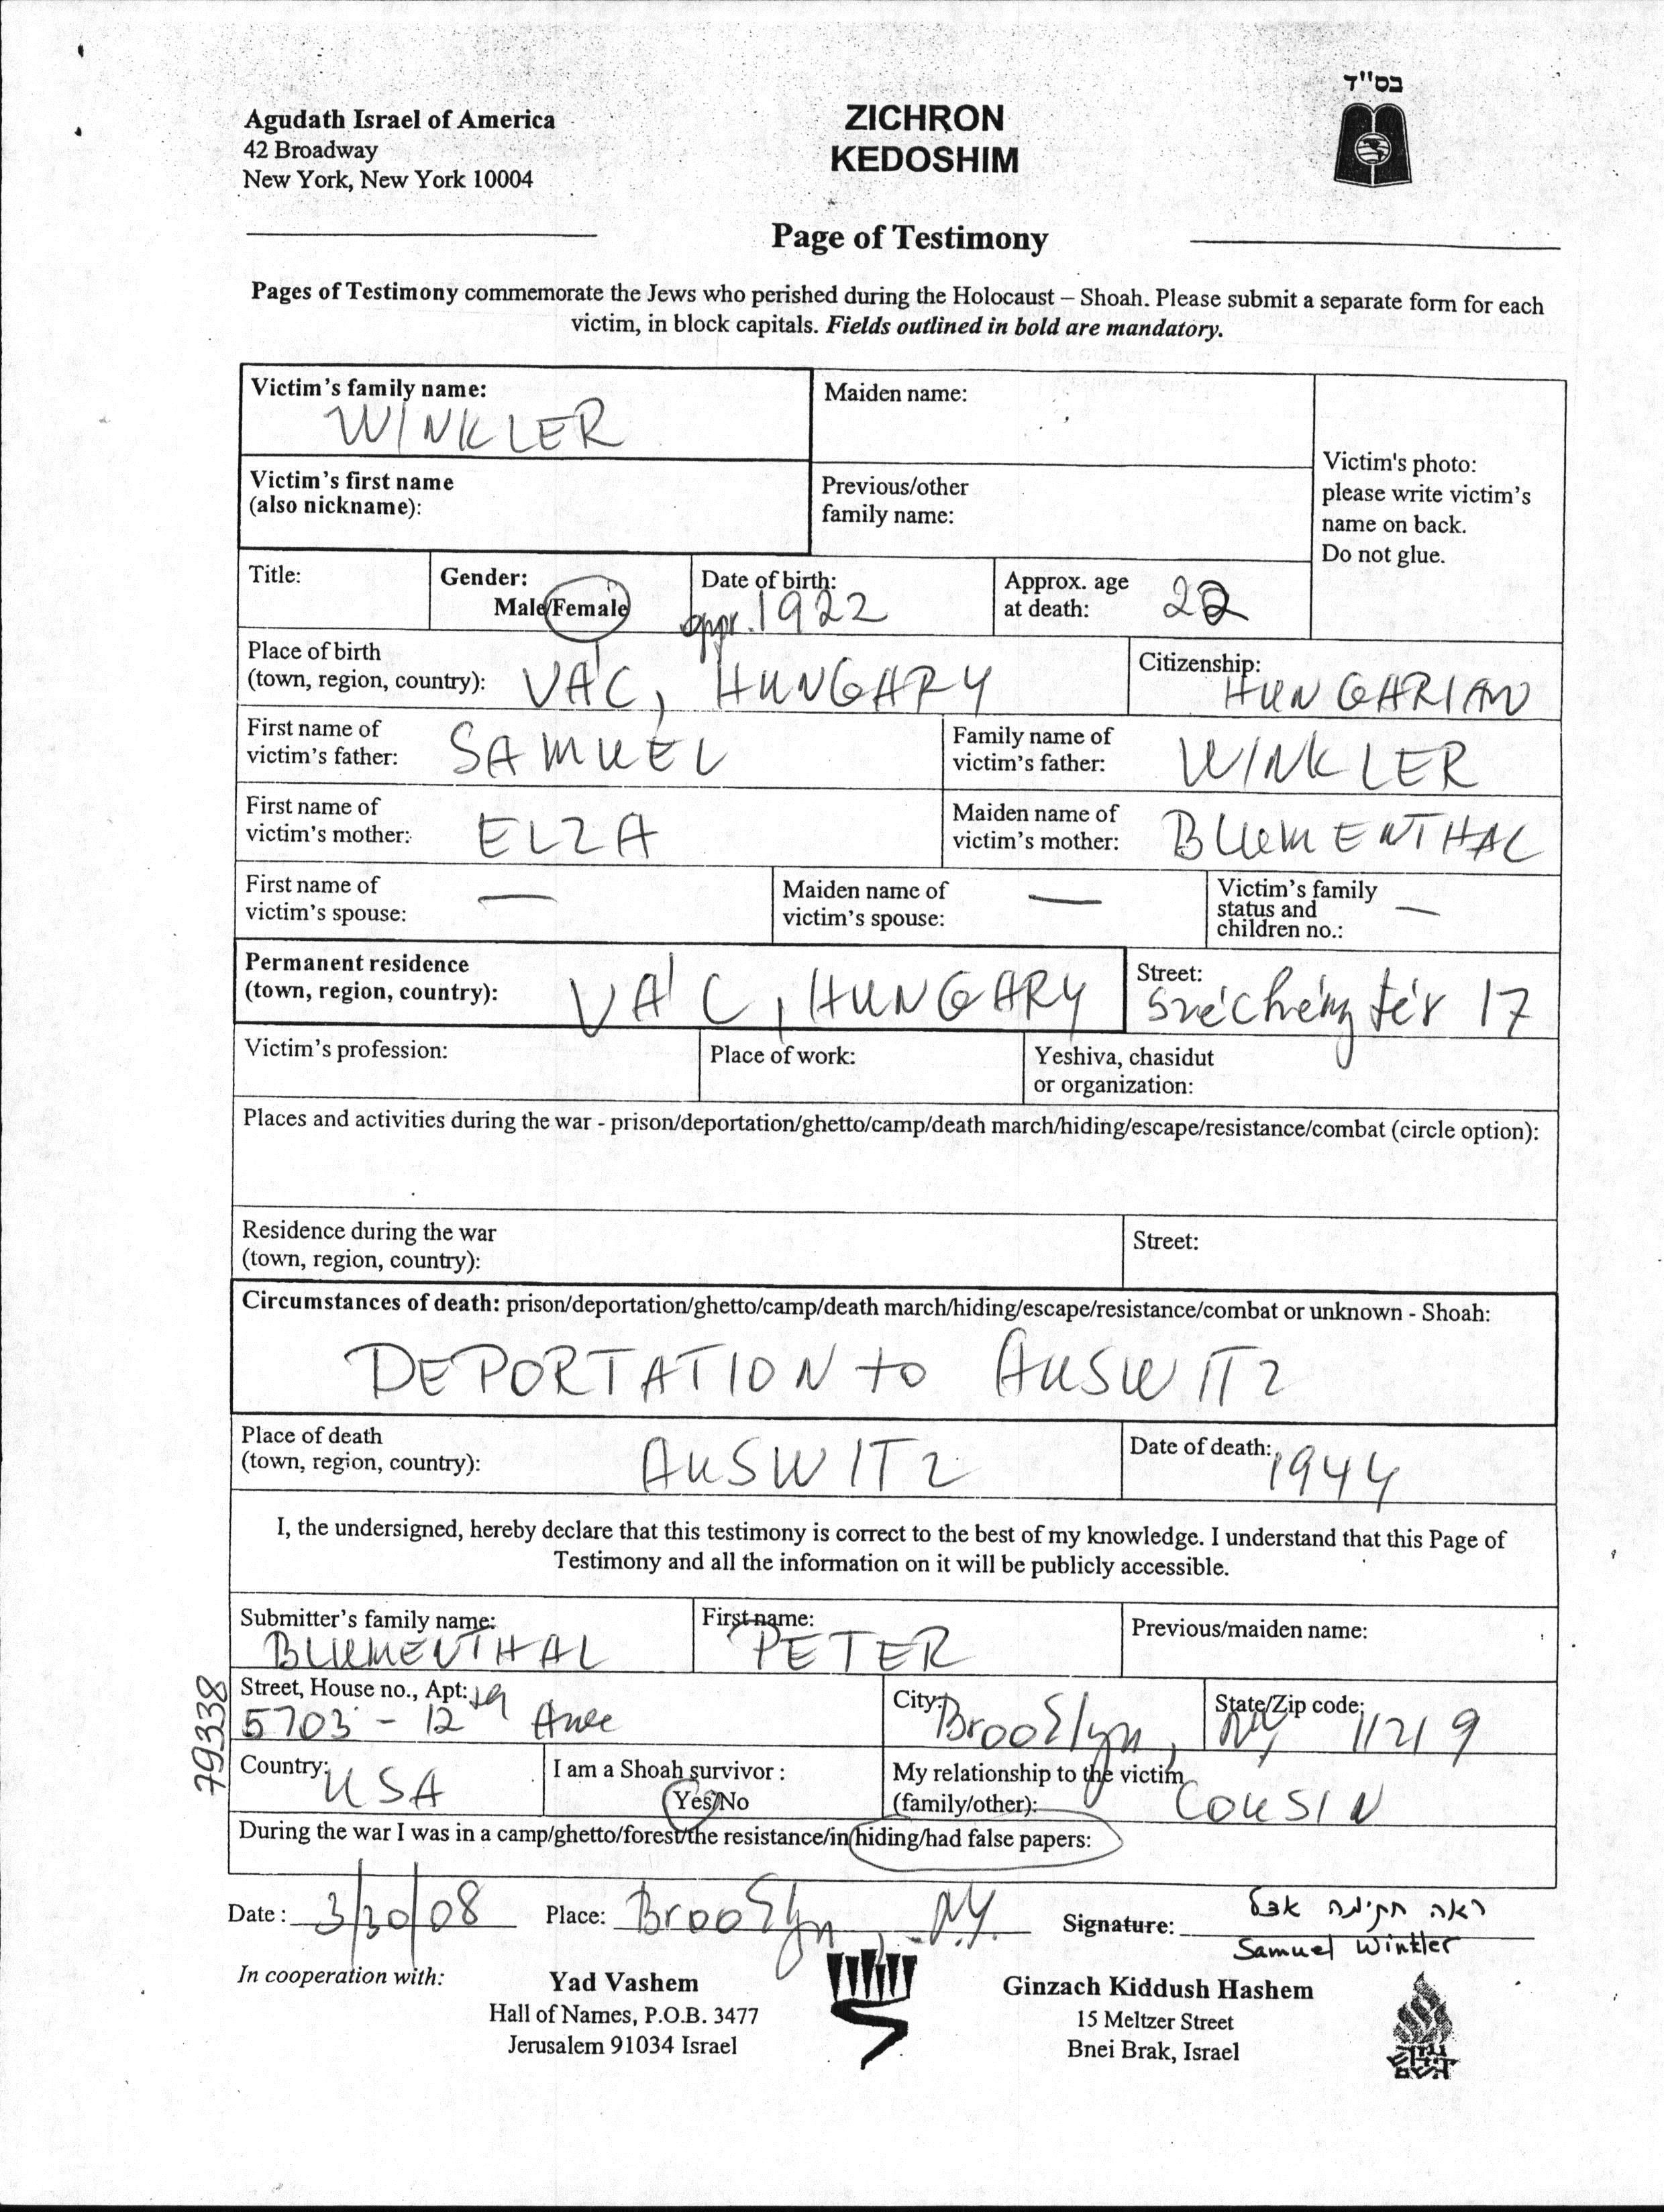 בס"ד
Agudath Israel of America
42 Broadway
New York, New York 10004
ZICHRON
KEDOSHIM
Page of Testimony
Pages of Testimony commemorate the Jews who perished during the Holocaust – Shoah. Please submit a separate form for each
victim, in block capitals. Fields outlined in bold are mandatory.
Victim's family name:
WINKLER
Maiden name:
Victim's photo:
please write victim's
name on back.
Do not glue.
Victim's first name
(also nickname):
Previous/other
family name:
Title:
Gender:
Male/Female
Date of birth:
appr. 1922
Approx. age
at death: 22
Place of birth
(town, region, country): VÁC, HUNGARY
Citizenship:
HUNGARIAN
First name of
victim's father: SAMUEL
Family name of
victim's father: WINKLER
First name of
victim's mother: ELZA
Maiden name of
victim's mother: BLUMENTHAL
First name of
victim's spouse: —
Maiden name of
victim's spouse: —
Victim's family
status and
children no.: —
Permanent residence
(town, region, country): VÁC, HUNGARY
Street:
Széchény tér 17
Victim's profession:
Place of work:
Yeshiva, chasidut
or organization:
Places and activities during the war - prison/deportation/ghetto/camp/death march/hiding/escape/resistance/combat (circle option):
Residence during the war
(town, region, country):
Street:
Circumstances of death: prison/deportation/ghetto/camp/death march/hiding/escape/resistance/combat or unknown - Shoah:
DEPORTATION to AUSWITZ
Place of death
(town, region, country): AUSWITZ
Date of death: 1944
I, the undersigned, hereby declare that this testimony is correct to the best of my knowledge. I understand that this Page of
Testimony and all the information on it will be publicly accessible.
Submitter's family name:
BLUMENTHAL
First name:
PETER
Previous/maiden name:
Street, House no., Apt:
5703 - 12th Ave
City: Brooklyn,
State/Zip code:
NY 11219
79338
Country: USA
I am a Shoah survivor :
Yes/No
My relationship to the victim
(family/other): COUSIN
During the war I was in a camp/ghetto/forest/the resistance/in hiding/had false papers:
Date : 3/30/08
Place: Brooklyn, N.Y.
Signature: ראה חתימה אצל
Samuel Winkler
In cooperation with:
Yad Vashem
Hall of Names, P.O.B. 3477
Jerusalem 91034 Israel
Ginzach Kiddush Hashem
15 Meltzer Street
Bnei Brak, Israel